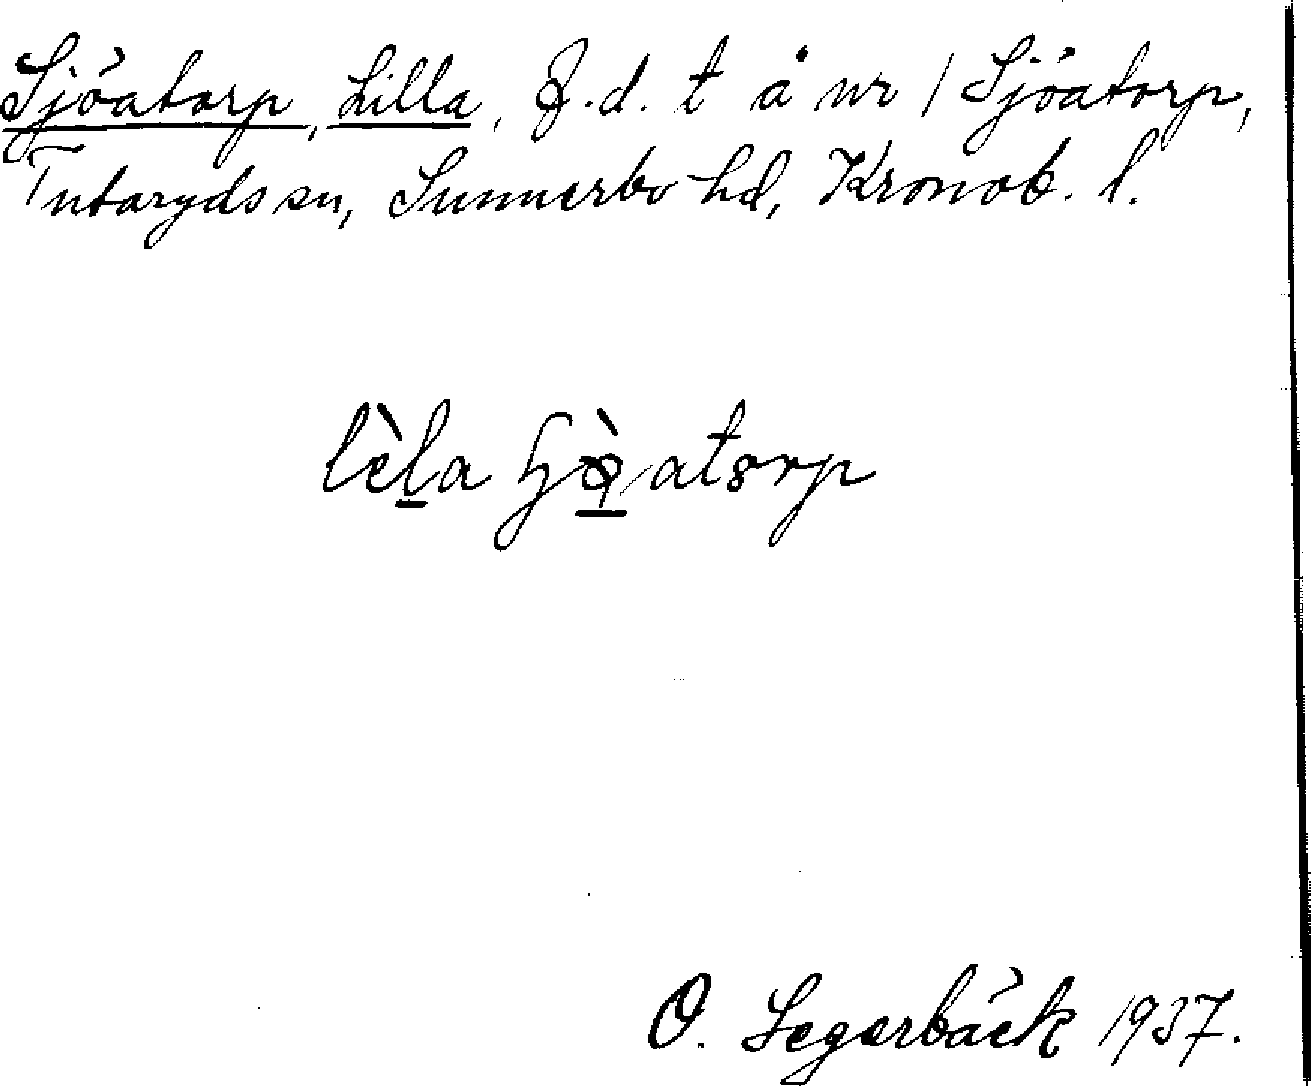 Sjöatorp, Lilla, f.d. t å nr 1 Sjöatorp,
Tutaryds sn, Sunnerbo hd, Kronob. l.
atorp
O. Segerbäck 1937.